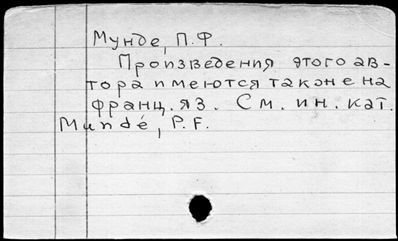 Мунде, П.Ф.
Произведения этого ав-
тора имеются также на
франц. яз. См. ин. кат.
Mundé, P.F.